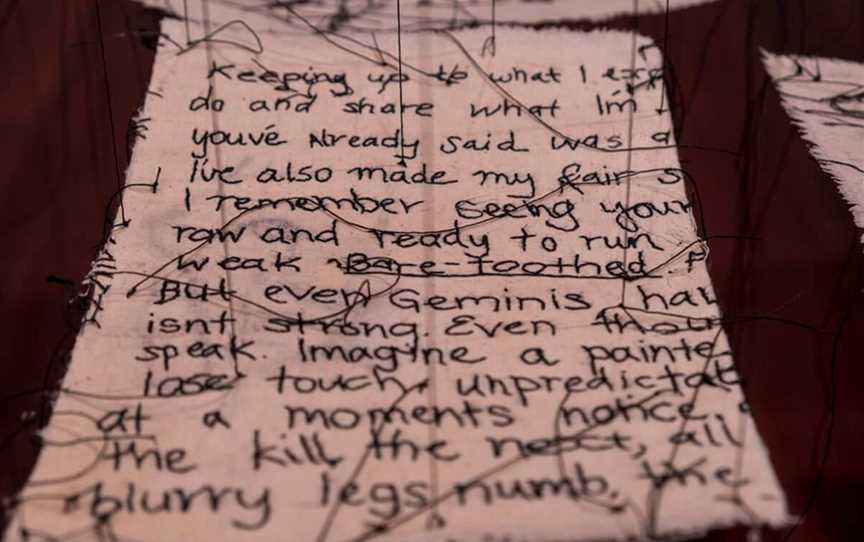 Keeping up to what I exp
do and share what I'm
youvé Already said was a
I've also made my fair s
I remember seeing your
raw and ready to run
weak Bare-Toothed.
But even Geminis hav
isnt strong. Even thou
speak. Imagine a painte
lose touch, unpredictab
at a moments notice.
the kill the next, all
blurry legs numb. the